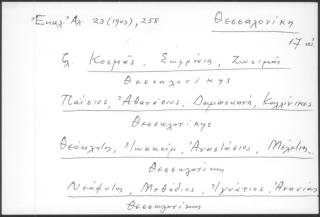 Ἐκκλ. Ἀλ. 23 (1903), 258
Θεσσαλονίκη
17 αἰ
Κοσμᾶς, Σωφρόνιος, Ζωσιμᾶς
Θεσσαλονίκης
Παΐσιος, Ἀθανάσιος, Δαμασκηνός, Καλλίνικος
Θεσσαλονίκης
Θεόκλητος, Ἰωακείμ, Ἀναστάσιος, Μελέτιος
Θεσσαλονίκης
Νεόφυτος, Μεθόδιος, Ἰγνάτιος, Ἀνανίας
Θεσσαλονίκης